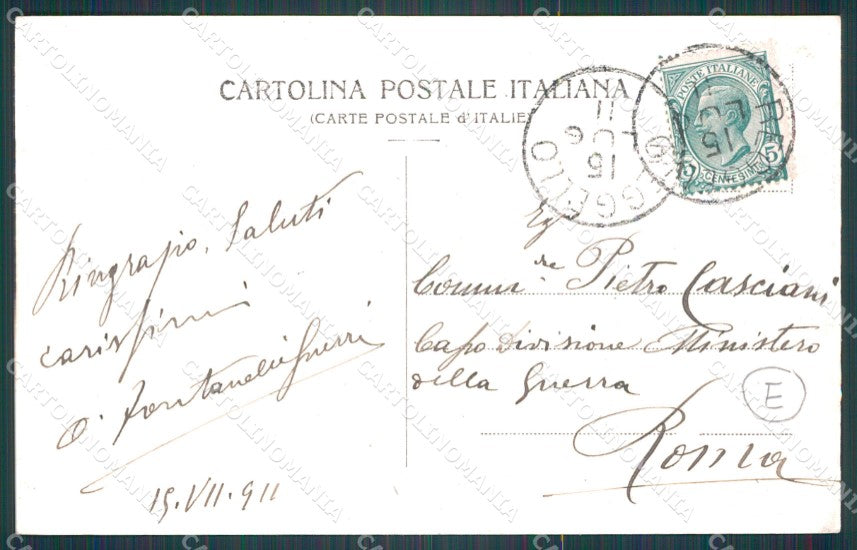 CARTOLINA POSTALE ITALIANA
(CARTE POSTALE d'ITALIE)
POSTE ITALIANE
CENTESIMI 5
REGGELLO
15 LUG 11
REGGELLO
15 LUG
Ringrazio, Saluti
carissimi
15.VII.911
Eg
Comm.re Pietro Casciani
Capo Divisione Ministero
della Guerra
Roma
E
CARTOLINOMANIA